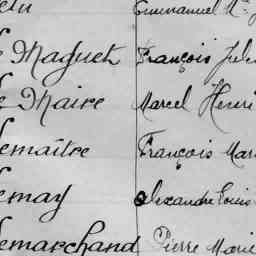 Emmanuel M. J
Maguet François Jule
Maire Marcel Henri
emaître François Mari
emay Alexandre Louis
emarchand Pierre Marie